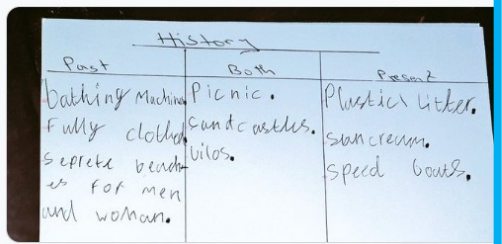 History
Past
Both
Present
bathing Machine
Fully clothed
seprete beach-
es for men
and woman.
Picnic.
sandcastles.
vilos.
Plastic litter.
suncreum.
speed boats.